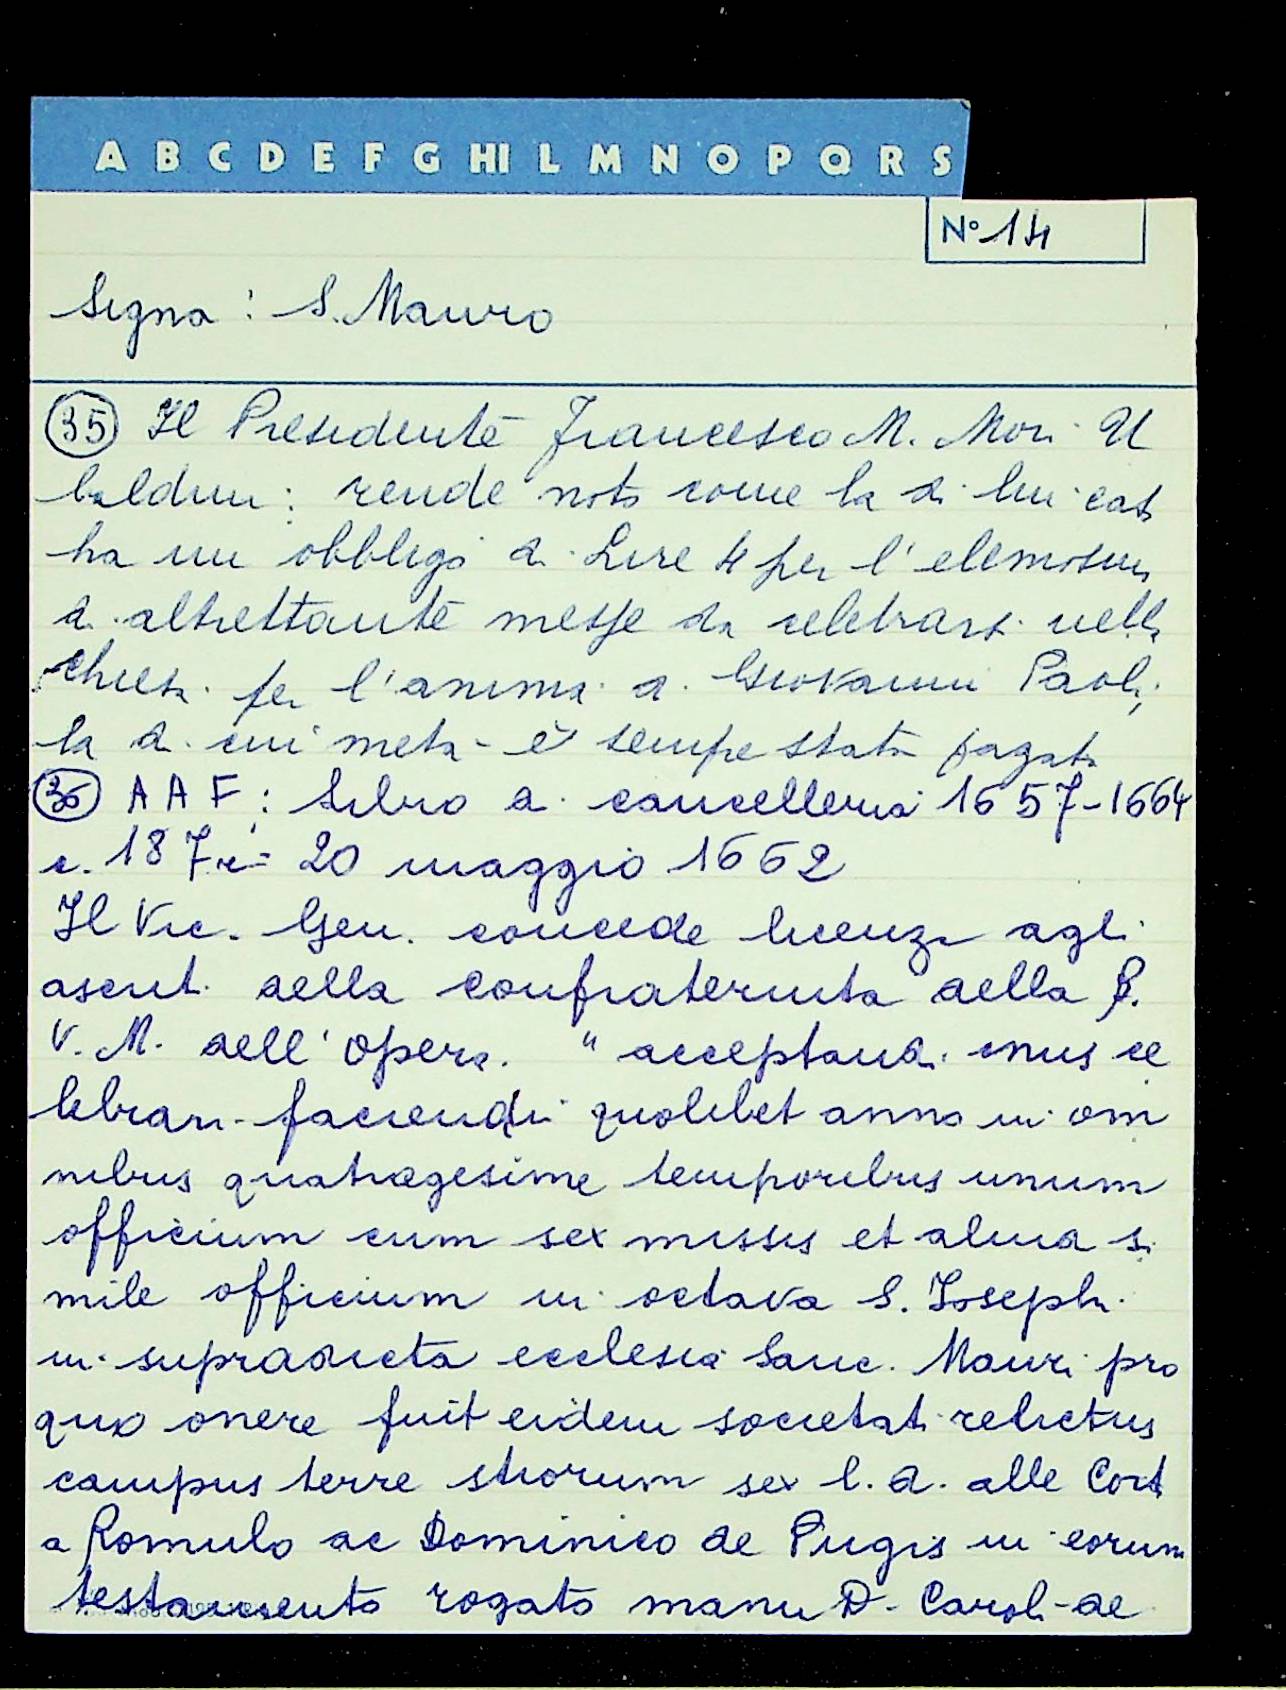 A B C D E F G HI L M N O P Q R S
N° 14
Signa: S. Mauro
(35) Il Presidente Francesco M. Mori U
baldini: rende noto come la di lui cas
ha un obbligo di Lire 4 per l'elemosina
di altrettante messe da celebrarsi nella
chiesa per l'anima di Giovanni Paoli,
la di cui metà è sempre stata pagata
(36) AAF: Libro di cancelleria 1657-1664
c. 187r = 20 maggio 1662
Il Vic. Gen. concede licenza agli
ascrit. della confraternita della B.
V. M. dell'Opera. "acceptandi onus ce
lebrari faciendi quolibet anno in om
nibus quatragesime temporibus unum
officium cum sex missis et aliud si
mile officium in octava S. Joseph
in supradicta ecclesia Sanc. Mauri pro
quo onere fuit eidem societati relictus
campus terre stiorum sex l. d. alle Cort
a Romulo ac Dominico de Pugis in eorum
testamento rogato manu D. Caroli de